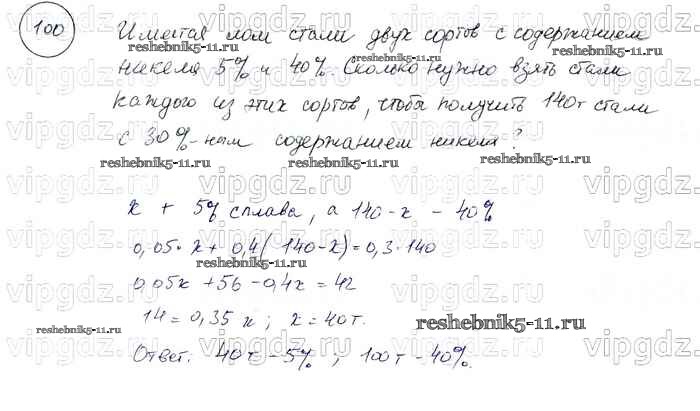 100
Имеется лом стали двух сортов с содержанием
никеля 5% и 40%. Сколько нужно взять стали
каждого из этих сортов, чтобы получить 140т стали
с 30%-ным содержанием никеля?
x т 5% сплава, а 140-x - 40%
0,05·x + 0,4(140-x)=0,3·140
0,05x + 56 - 0,4x = 42
14 = 0,35x; x = 40т.
Ответ: 40т - 5%; 100т - 40%.
vipgdz.ru
reshebnik5-11.ru